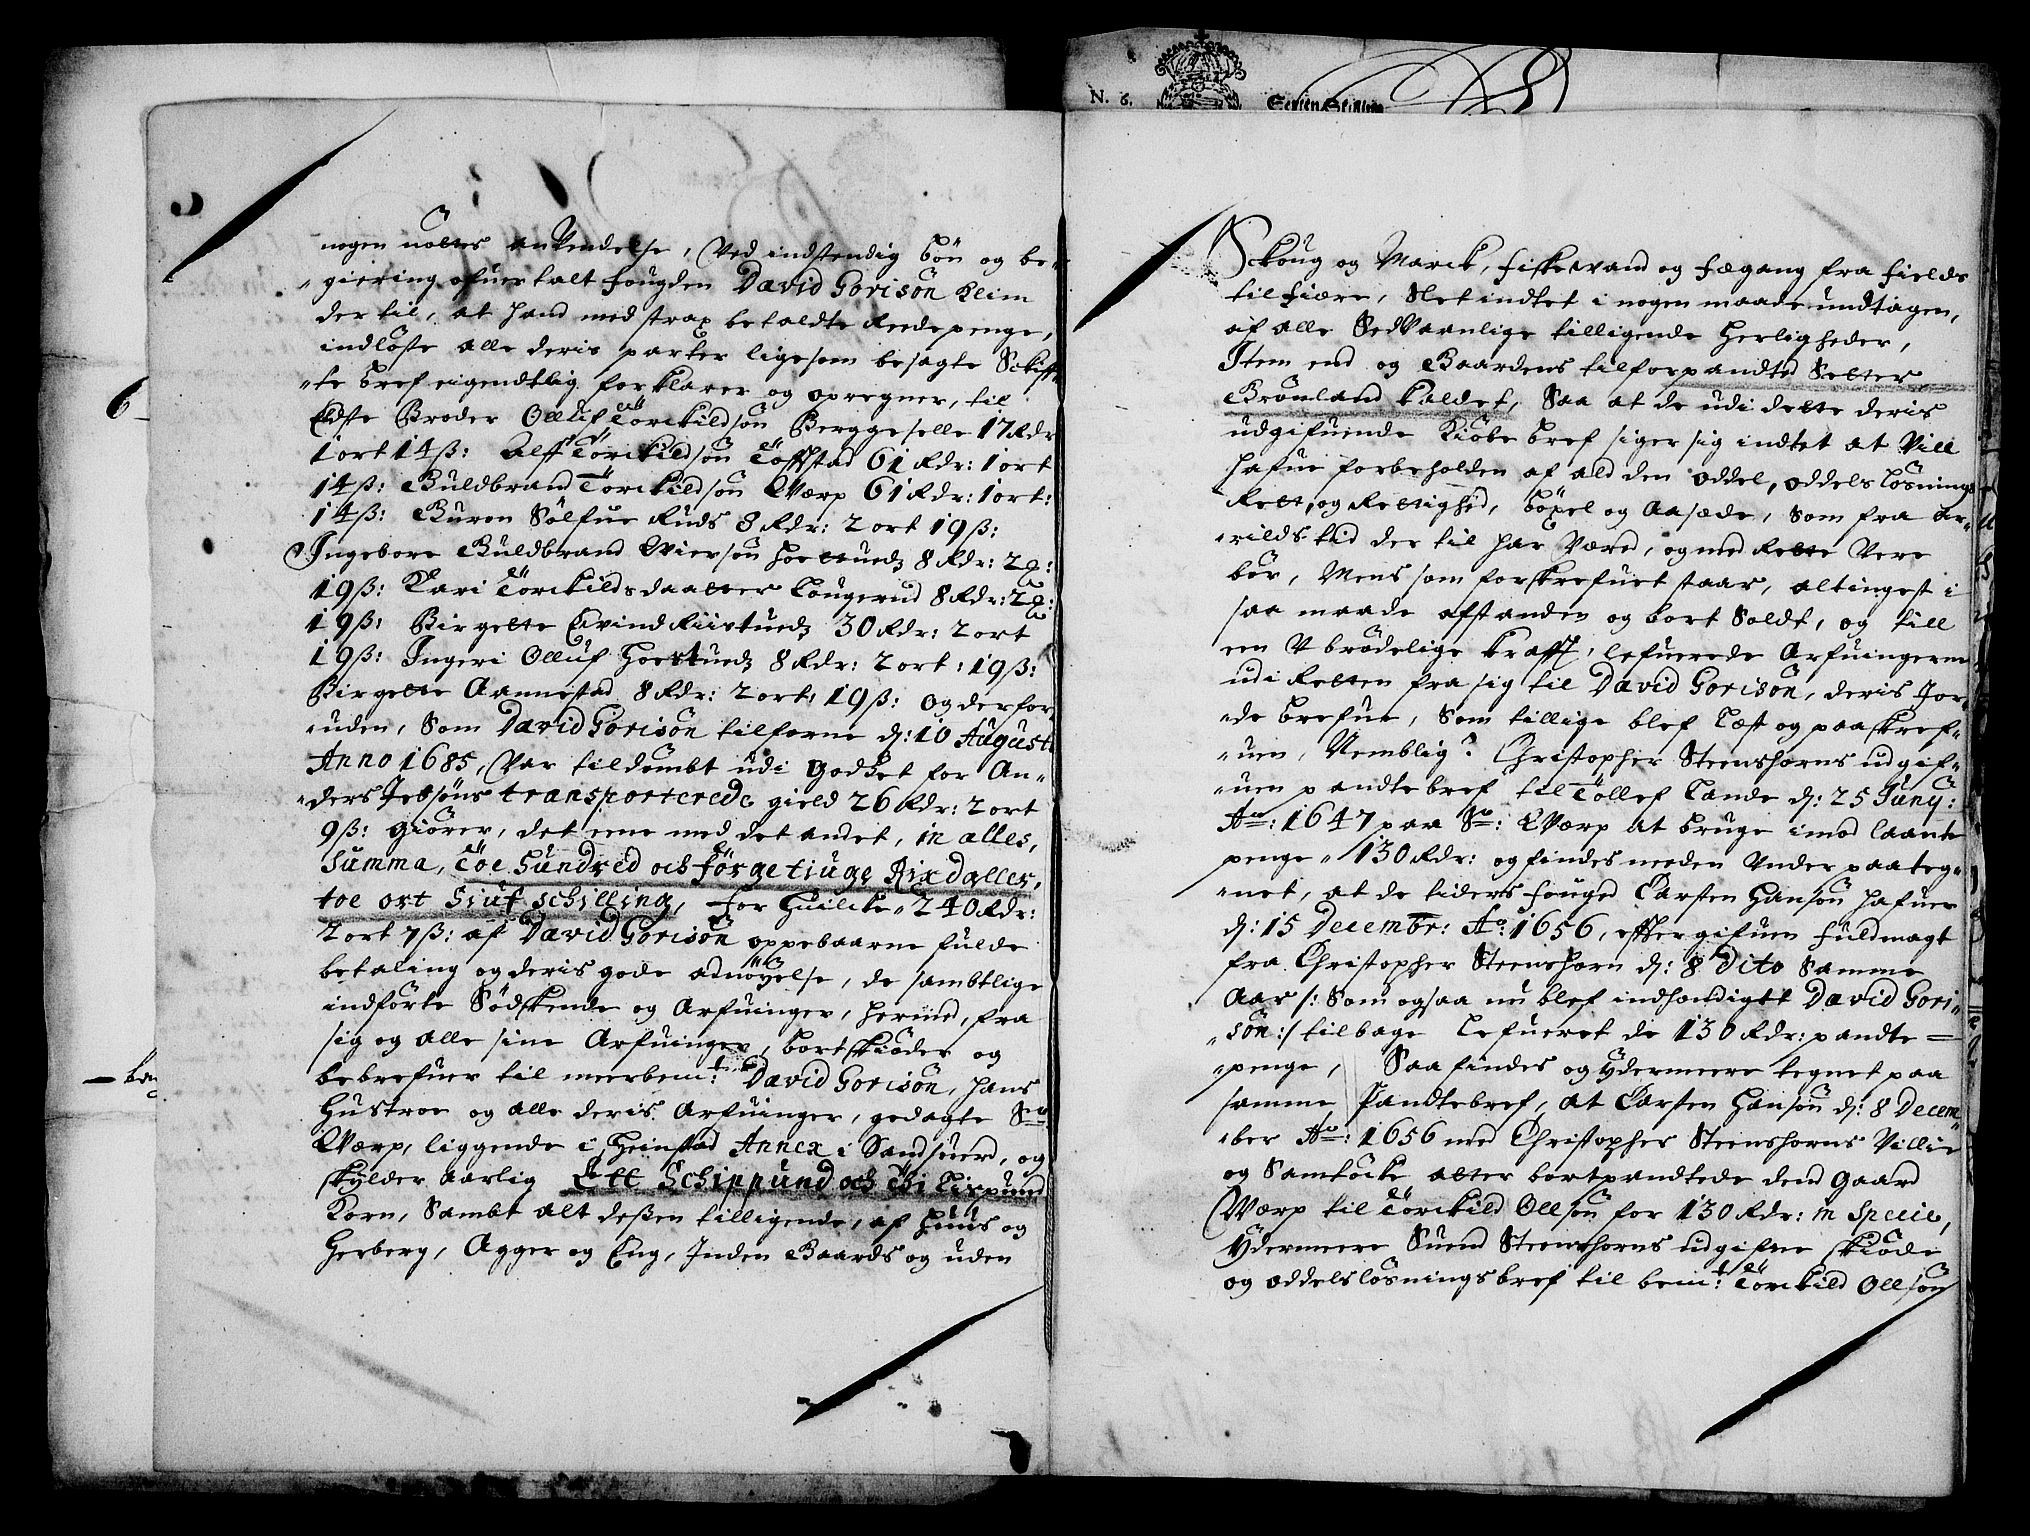 N. 6. Sexten Skilling
nogen nöttes anVendelse, Ved indstendig bön og be-
"giering ofuertalt fougden David Gorisön Klim
der til, at hand med strax betaldte Reede penge,
indlöste alle deris parter ligesom besagte Sckiff-
"te bref eigendtlig forklarer og opregner, til
Eldste Broder Olluf Törckildsön Berggeselle 17 Rdr
1 ort 14 ß: Alff Törckildsön Töffstad 61 Rdr: 1 ort
14 ß: Guldbrand Törckildsön Qværp 61 Rdr: 1 ort:
14 ß: Guron Sölfue Ruds 8 Rdr: 2 ort 19 ß:
Ingebore Guldbrand Wiersön 8 Rdr: 2
19 ß: Kari Törckildsdaatter Lougerud 8 Rdr: 2
19 ß: Birgette Eivind 30 Rdr: 2 ort
19 ß: Ingeri Olluf 8 Rdr: 2 ort: 19 ß:
Birgette Aannestad 8 Rdr: 2 ort: 19 ß: og derfor
"uden, Som David Gorisön tilforne d: 10 Augusti
Anno 1685, Var tildömbt udi Godset for An-
"ders Jebsöns transporterede gield 26 Rdr: 2 ort
9 ß: giörer, det eene med det andet, in alles,
Summa, Toe Hundred och förgetiuge Rixdaller,
toe ort Siuf schilling, for Huilcke " 240 Rdr:
2 ort 7 ß: af David Gorisön oppebaarne fulde
betaling og deris gode adnöyelse, de sambtlige
indförte Södskende og Arfuinger, hermed, fra
sig og alle sine Arfuinger, bortskiöder og
bebrefuer til meerbem:t David Gorisön, hans
Hustroe og alle deris Arfuinger, gedagte
Qværp, liggende i Heinstad Annex i Sandsuerd, og
skylder aarlig Ett Schippund och Lispund
Korn, Sambt alt deßen tilligende, af Huus og
Herberg, Agger og Eng, Inden Gaards og uden
Sckoug og Marck, fiskevand og fægang fra fields
til fiære, Slet indtet i nogen maade undtagen,
af alle Sedvaanlige tilligende Herligheder,
Item end og Gaardens tilforpandted Setter
Brönland kaldet, Saa at de udi dette deris
udgifuende Kiöbe bref siger sig indtet at Vill
hafue forbeholden af ald den oddel, oddels lösnings
Rett, og Rettighed, böxel og Aasæde, Som fra Ar-
"rilds tid der til har Væred, og med Rette Vere
bör, Mens som forskrefuet staar, altingest i
saa maade afstanden og bort Soldt, og till
een Vbrödelige krafft, lefuerede Arfuingerne
udi Retten fra sig til David Gorisön, deris Jor-
"de brefue, Som tillige blef Læst og paaskref-
"uen, Nemblig? Christopher Steenshorns udgif-
"uen pandtebref til Tollef Lande d: 25 Juny:
Ao: 1647 paa Qværp at bruge imod laante
penge " 130 Rdr: og findes neden Vnder paateg-
"net, at de tiders fouged Carsten Hansön hafuer
d: 15 Decembr: Ao: 1656, effter gifuen fuldmagt
fra Christopher Steenshorn d: 8 Dito samme
Aar /: Som ogsaa nu blef indhændiget David Gori-
"sön :/ tilbage Lefueret de 130 Rdr: pandte =
"penge, Saa findes og Ydermeere tegnet paa
samme Pandtebref, at Carsten Hansön d: 8 Decem
"ber Ao: 1656 med Christopher Steenshorns Villie
og Samtöcke atter bortpandtede dend Gaard
Qværp til Törckild Ollsön for 130 Rdr: in Specie,
Ydermeere Suend Steenshorns udgifne Skiöde
og oddelslösnings bref til bem:t Törckild Ollsön
6